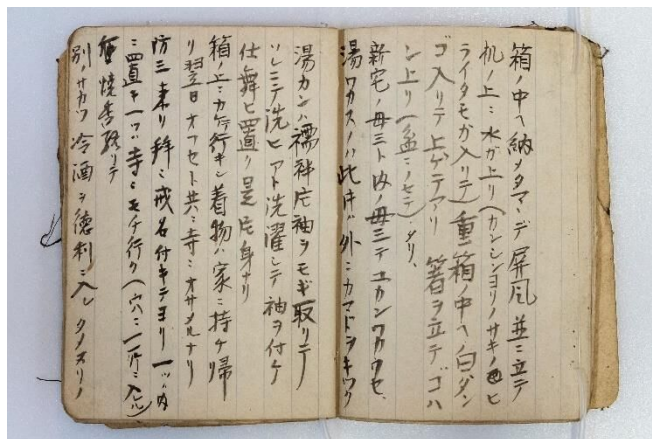 箱ノ中ヘ納メタマヽデ屏風並ニ立テ
机ノ上ニ水ガ上リ(カンシンヨリノサキノヒ
ライタモガ入リテ)重箱ノ中ヘ白ダン
ゴ入リテ上ゲテアリ 箸ヲ立テゴハ
ン上リ(盆ニノセテ)タリ、
新宅ノ母ニト内ノ母ニテユカンワカセ
湯ワカスノハ此ノ外ニカマドヲキツク
湯カンハ襦袢片袖ヲモギ取リテ
ソレニテ洗ヒアト洗濯シテ袖ヲ付ケ
仕舞ヒ置リ是片身ナリ
箱ノ上ニカケ行キシ着物ハ家ニ持チ帰
リ翌日オフセト共ニ寺ニオサメルナリ
防三来リ拝ミ戒名付キテヨリ一ツハ内
ニ置キ一ツハ寺ニモチ行ク(穴ニ一所ニ入ル)
焼香終リテ
別ノサカヅ冷酒ヲ徳利ニ入レ